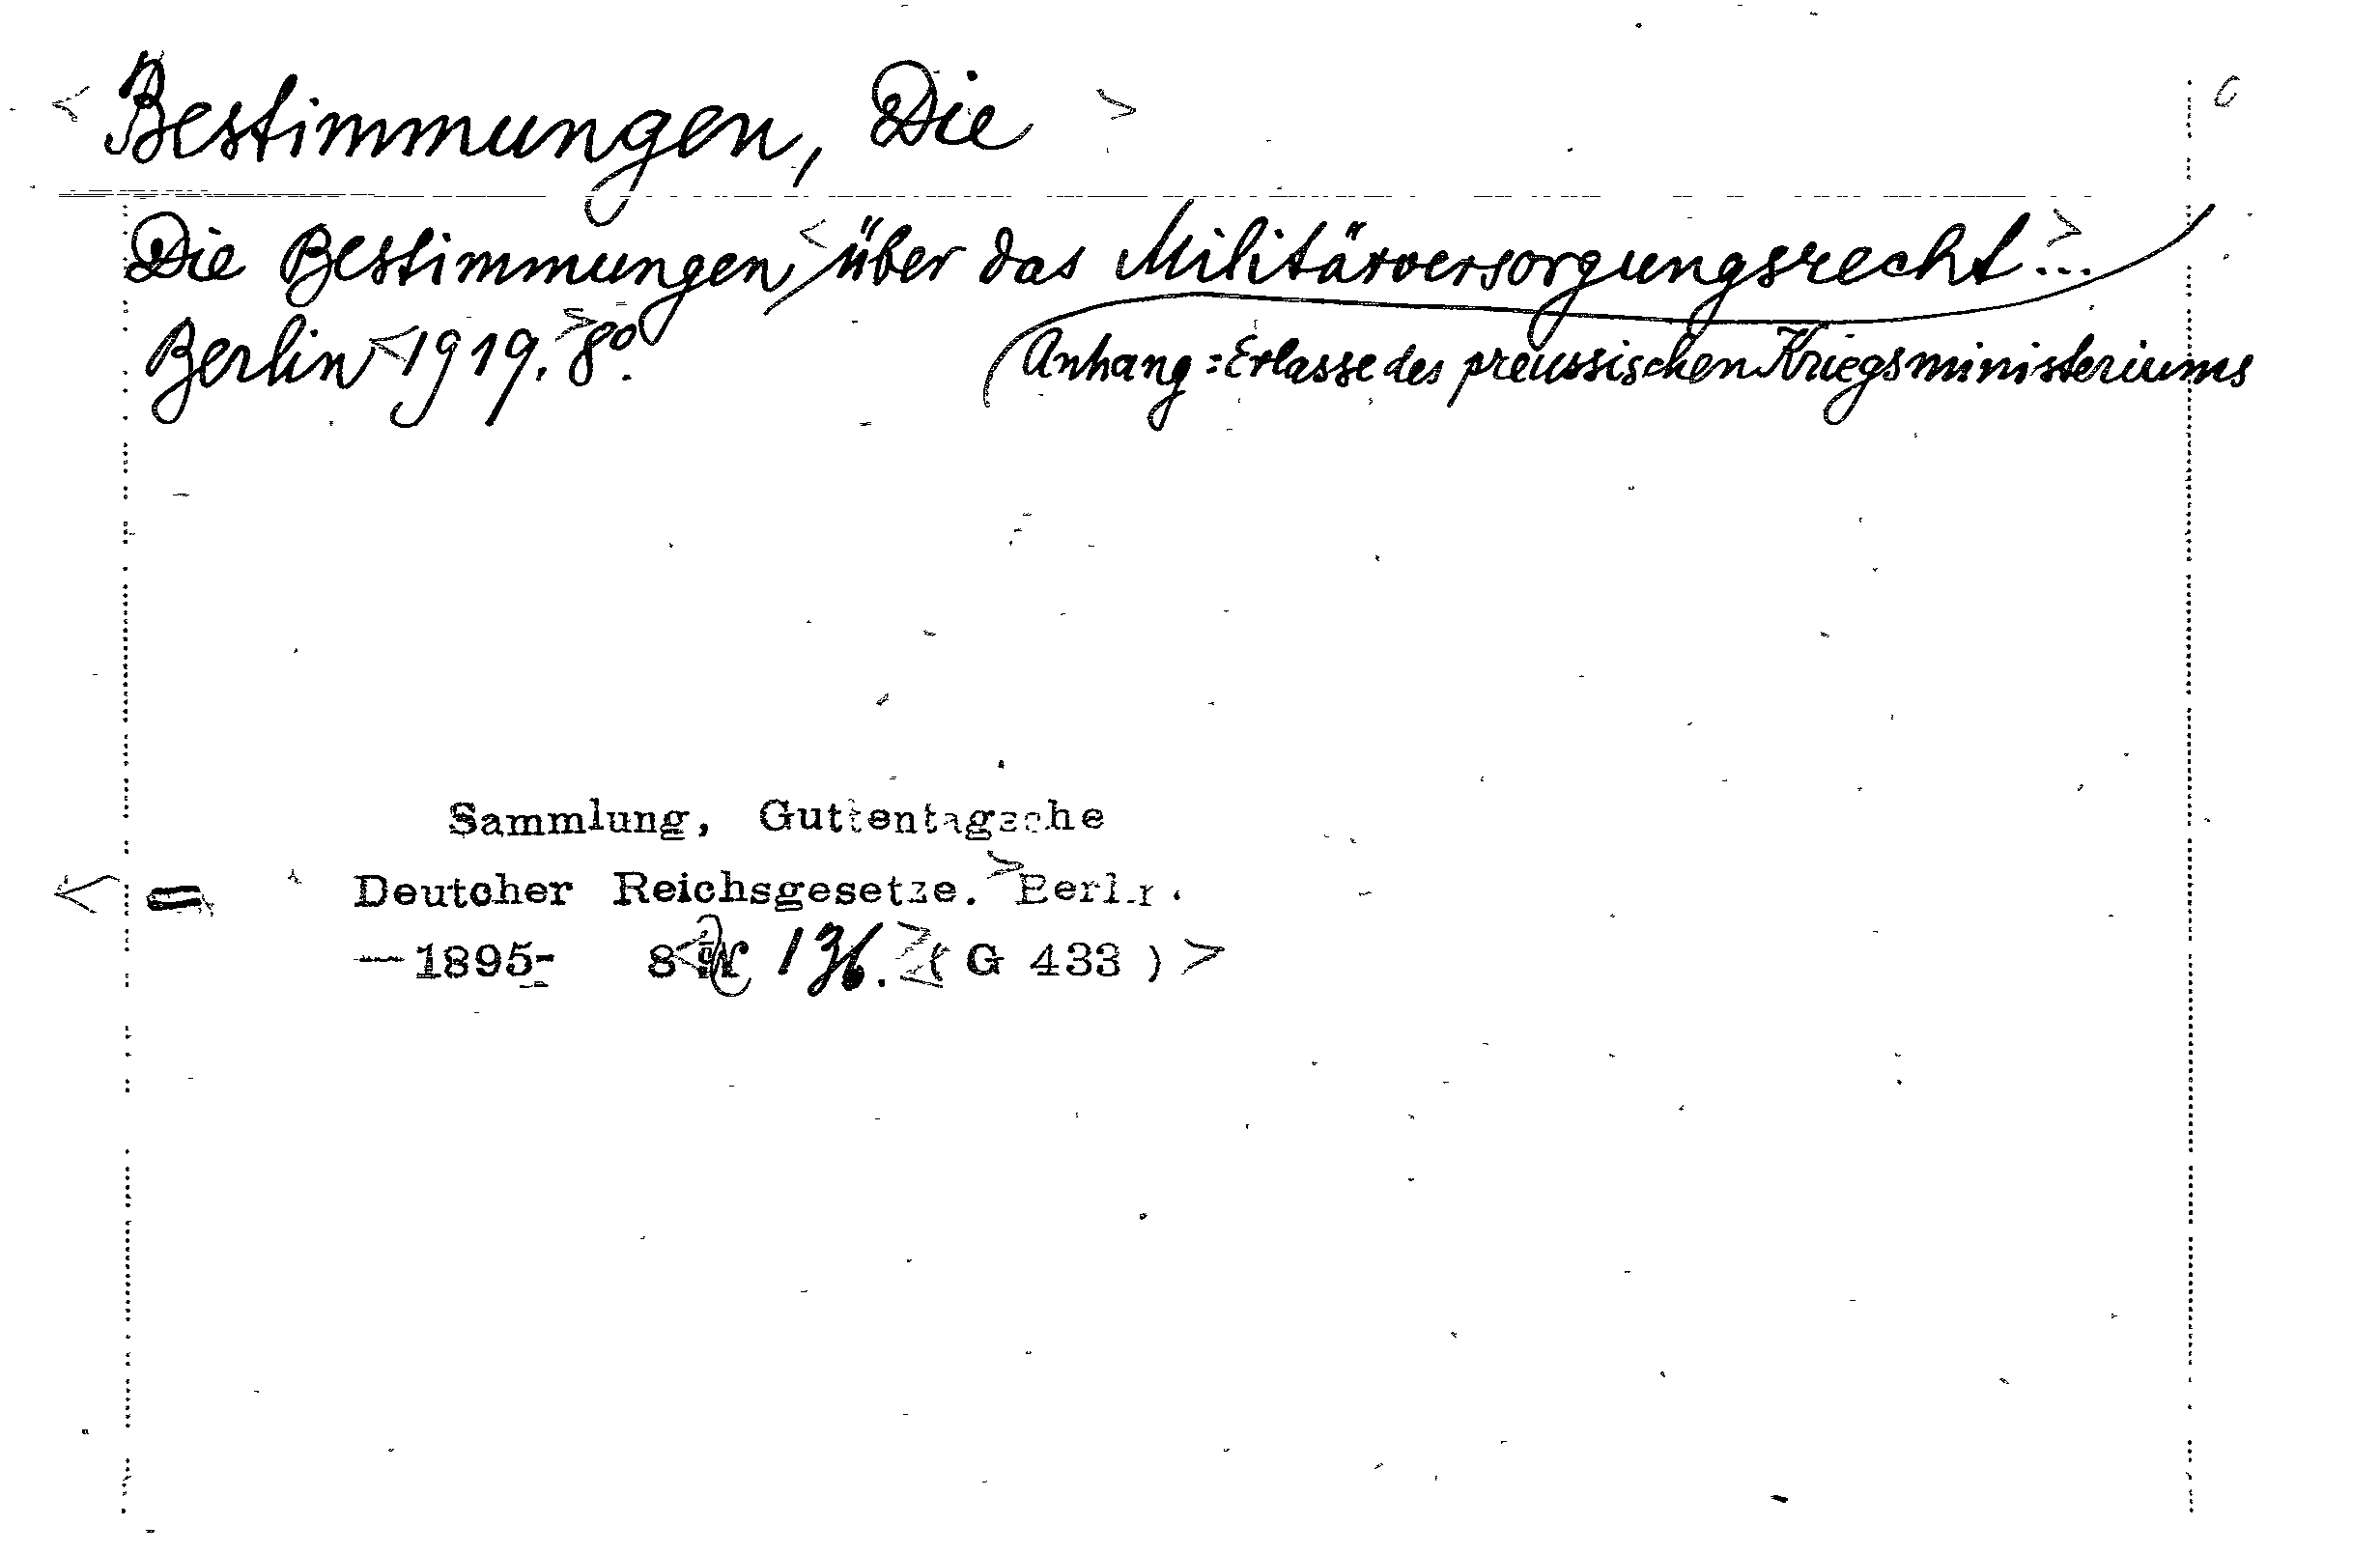 < Bestimmungen, Die >
Die Bestimmungen < über das Militärversorgungsrecht... >
Berlin < 1919. > 8º.
(Anhang: Erlasse des preussischen Kriegsministeriums
Sammlung, Guttentagsche
< = Deutcher Reichsgesetze. > Berlin.
—1895- 8 < N 136. > < ( G 433 ) >